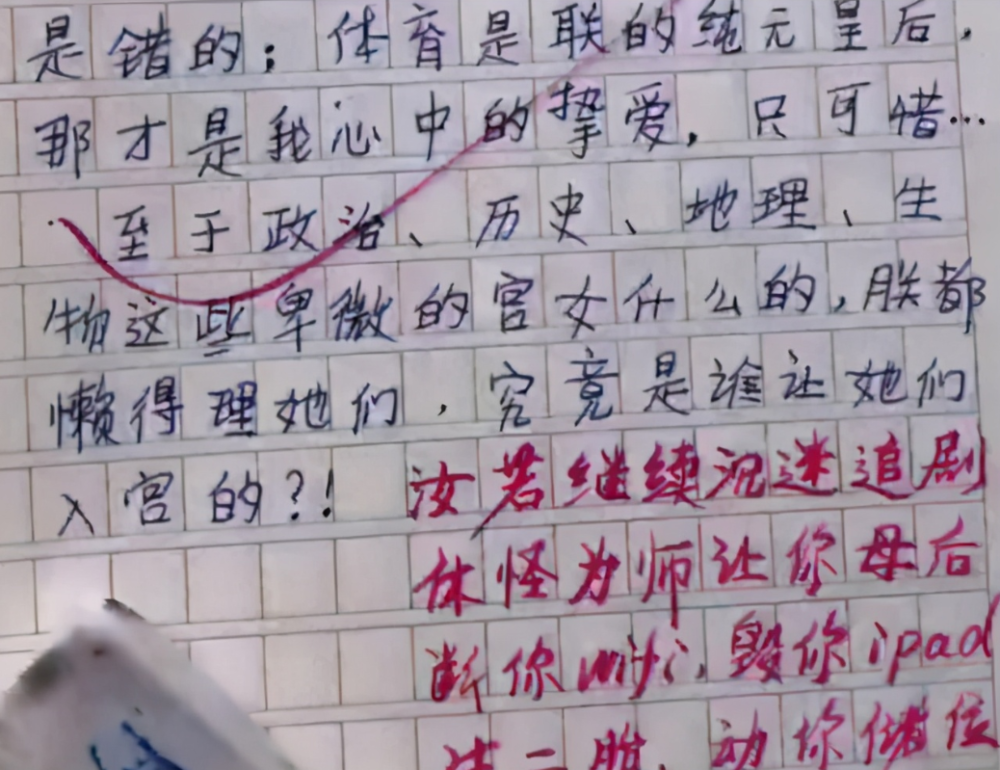 是错的；体育是联的纯元皇后，
那才是我心中的挚爱，只可惜…
…至于政治、历史、地理、生
物这些卑微的宫女什么的，朕都
懒得理她们，究竟是谁让她们
入宫的？！汝若继续沉迷追剧
休怪为师让你母后
断你wifi，毁你ipad
二胎，动你储位